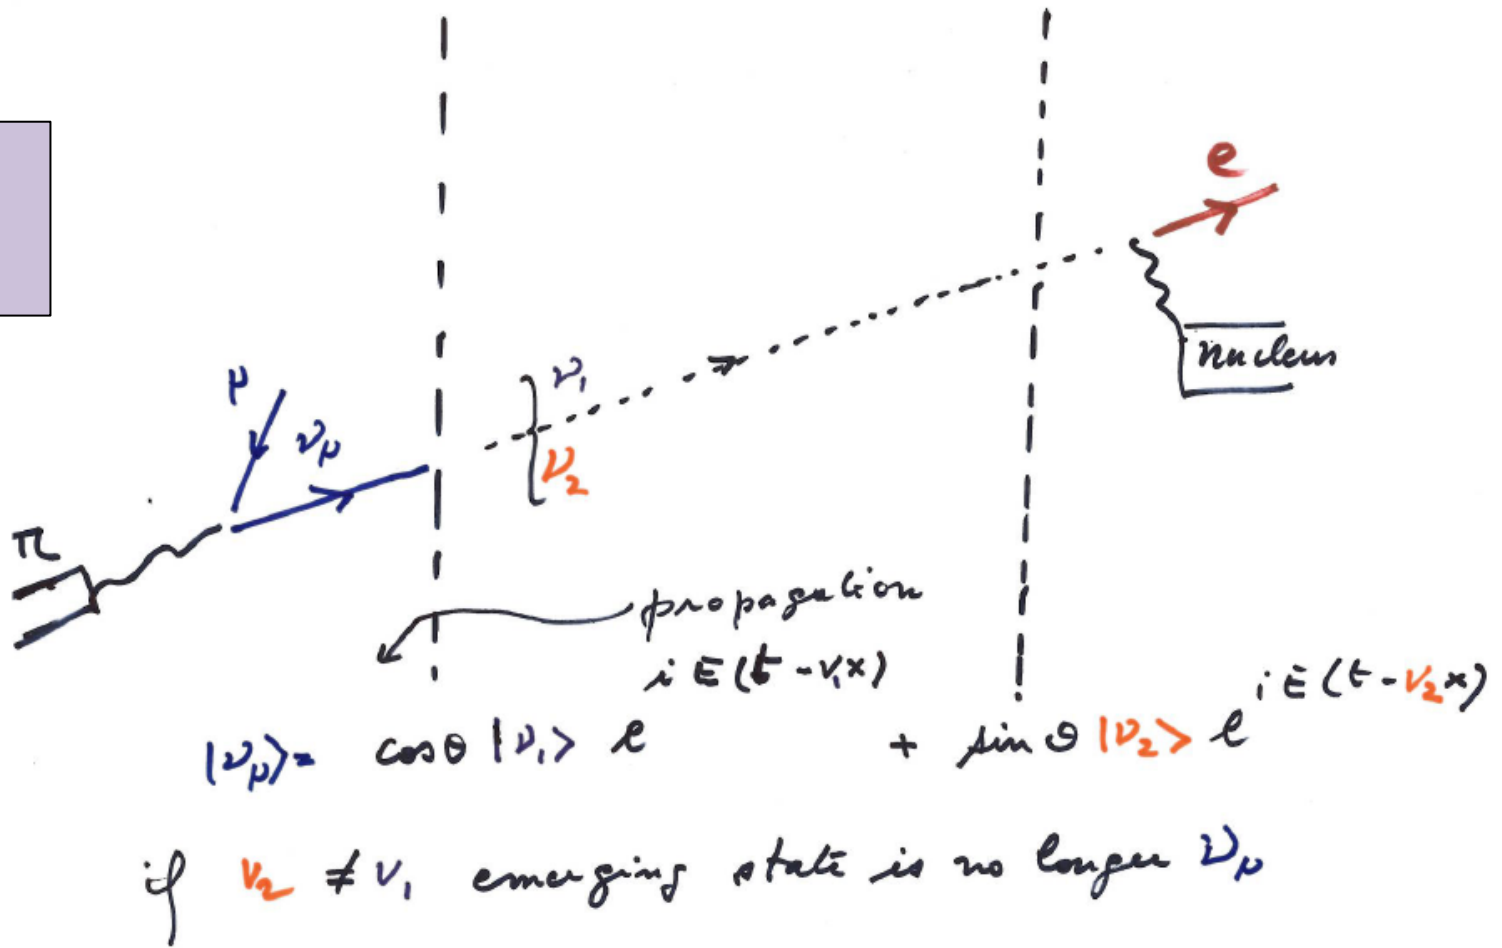 e
nucleus
μ
ν_μ
ν₁
ν₂
π
propagation
|ν_μ> = cosθ |ν₁> e^{iE(t-v₁x)} + sinθ |ν₂> e^{iE(t-v₂x)}
if v₂ ≠ v₁ emerging state is no longer ν_μ